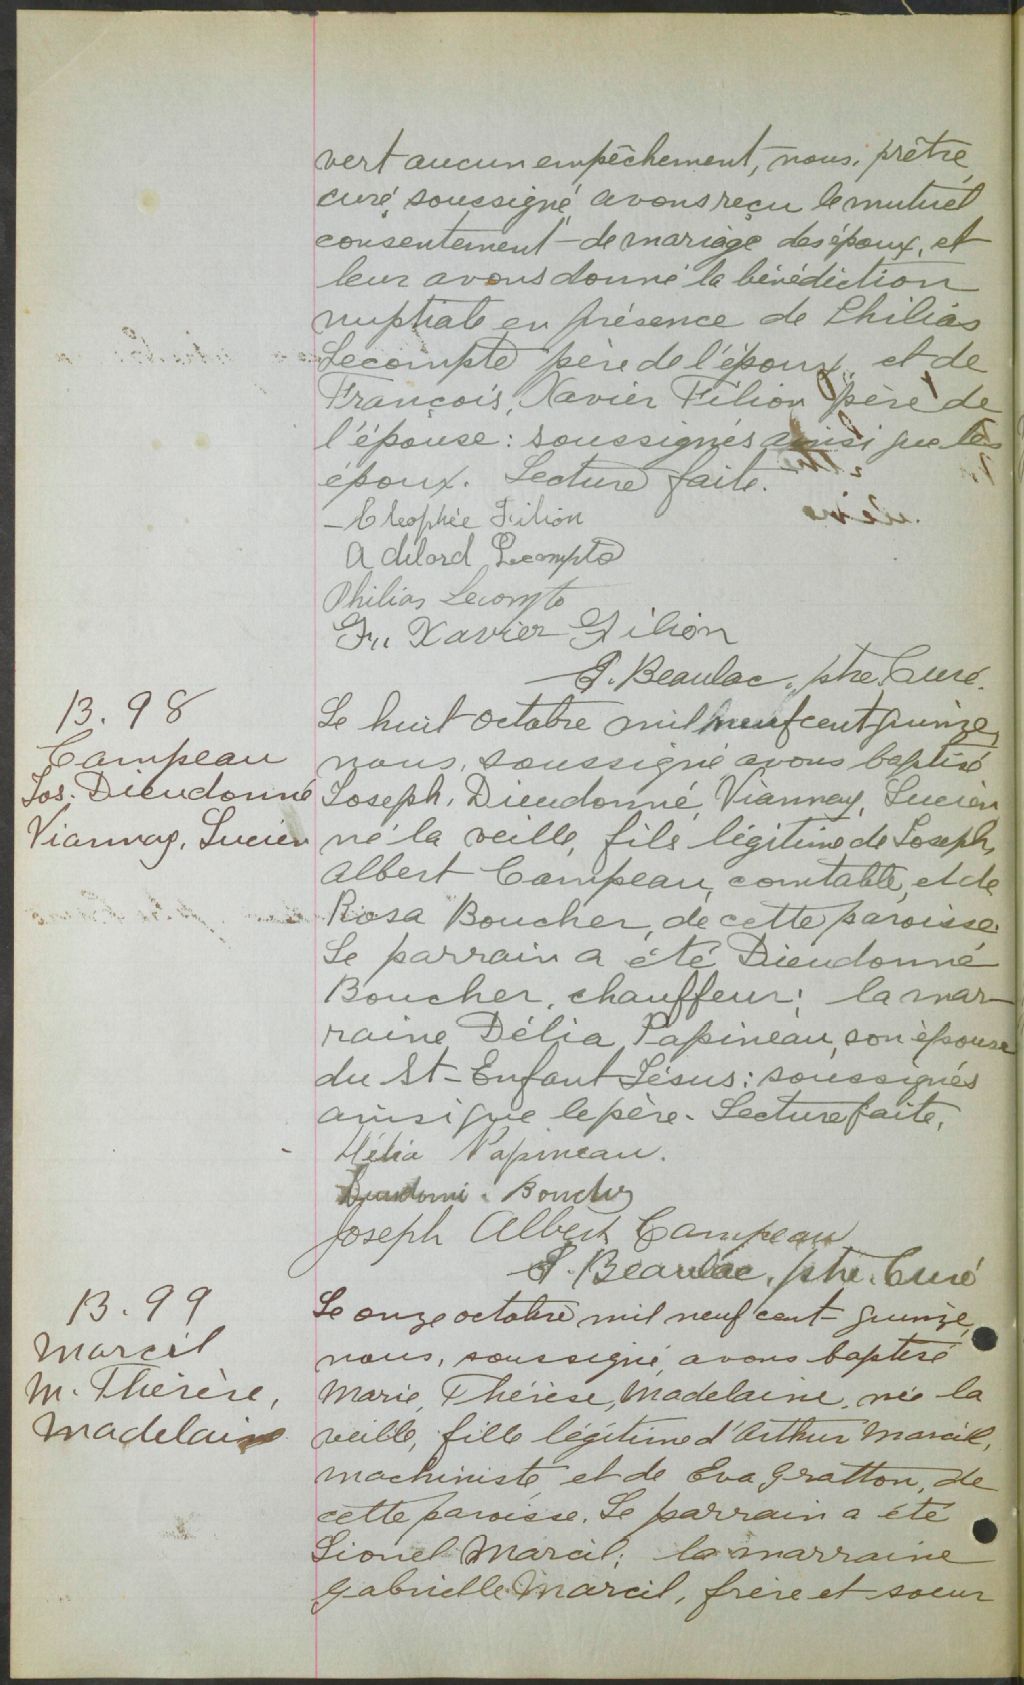 vert aucun empêchement, nous, prêtre,
curé, soussigné, avons reçu le mutuel
consentement de mariage des époux, et
leur avons donné la bénédiction
nuptiale en présence de Philias
Lecompte père de l'époux, et de
François, Xavier Filion père de
l'épouse: soussignés ainsi que les
époux. Lecture faite.
- Cléophée Filion
Adelord Lecompte
Philias Lecompte
Fr. Xavier Filion
P. Beaulac, ptre. Curé.
B. 98
Campeau
Jos. Dieudonné
Viannay, Lucien
Le huit octobre mil neuf cent quinze,
nous, soussigné avons baptisé
Joseph, Dieudonné, Viannay, Lucien
né la veille, fils légitime de Joseph,
Albert Campeau, comtable, et de
Rosa Boucher, de cette paroisse.
Le parrain a été Dieudonné
Boucher, chauffeur; la mar-
raine Délia Papineau, son épouse
du St-Enfant Jésus: soussignés
ainsi que le père. Lecture faite.
Délia Papineau.
Dieudonné Boucher
Joseph Albert Campeau
P. Beaulac, ptre. Curé
B. 99
Marcil
M. Thérèse,
Madelaine
Le onze octobre mil neuf cent quinze,
nous, soussigné, avons baptisé
Marie, Thérèse, Madelaine, née la
veille, fille légitime d'Arthur Marcil,
machiniste, et de Eva Gratton, de
cette paroisse. Le parrain a été
Lionel Marcil; la marraine
Gabrielle Marcil, frère et soeur